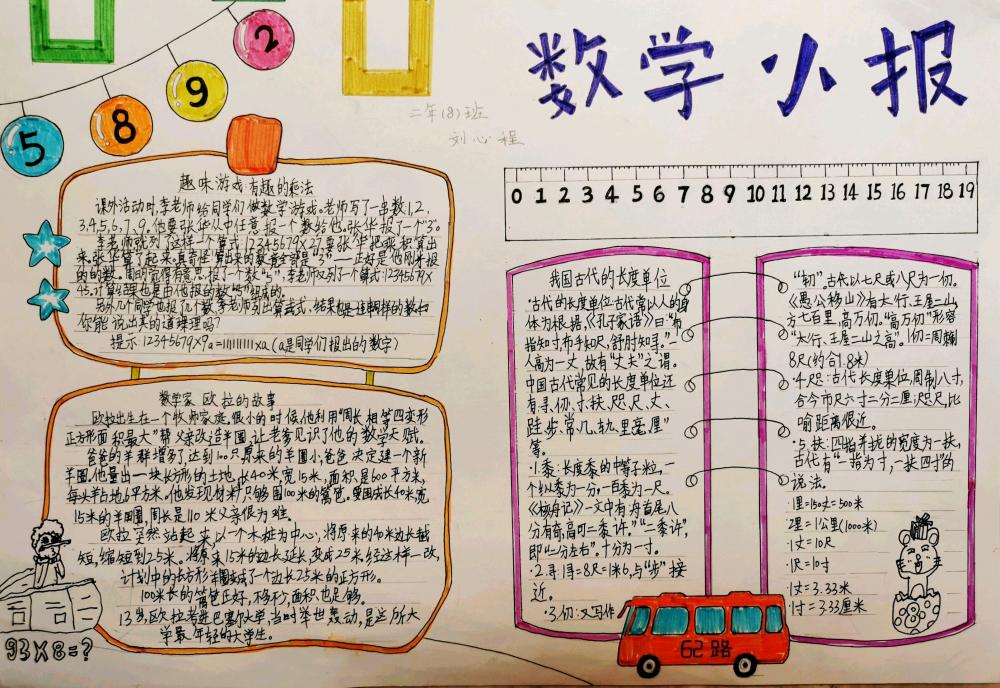 数学小报
二年(8)班
刘心程
5 8 9 2
趣味游戏 有趣的乘法
课外活动时,李老师给同学们做数学游戏。老师写了一串数1,2,
3,4,5,6,7,9。他要张华从中任意报一个数给他。张华报了个"3"。
李老师就列了这样一个算式12345679×27,要张华把乘积算出
来。张华算了起来,真奇怪,算出来的数竟全部是"3"——正好是他刚才报
的的数。周明觉得有意思,报了个数"5",李老师又列了个算式:12345679×
45,计算结果也是由他报的数"5"组成的。
另外几个同学也报了个数,李老师列出算式,结果也是这样的数,
你能说出其的道理吗?
提示12345679×9a=111111111×a(a是同学们报出的数字)
数学家 欧拉的故事
欧拉出生在一个牧师家庭。很小的时候,他利用"周长相等四变形
正方形面积最大"帮父亲改造羊圈,让老爹见识了他的数学天赋。
爸爸的羊群增多了,达到100只,原来的羊圈小,爸爸决定建一个新
羊圈。他量出一块长方形的土地,长40米,宽15米,面积是600平方米,
每头羊占地6平方米。他发现材料只够围100米的篱笆。要围成长40米,宽
15米的羊圈,周长是110米父亲很为难。
欧拉突然站起来,以一个木桩为中心,将原来的40米边长截
短,缩短到25米。将原来15米的边长延长,变成25米,经这样一改,
计划中的长方形羊圈变成了一个边长25米的正方形。
100米长的篱笆正好,不够不少,面积也足够。
13岁,欧拉考进巴塞尔大学,当时举世轰动,是这所大
学最年轻的大学生。
93×8=?
0 1 2 3 4 5 6 7 8 9 10 11 12 13 14 15 16 17 18 19
我国古代的长度单位
·古代的长度单位:古代常以人的身
体为根据,《孔子家语》曰:"布
指知寸,布手知尺,舒肘知寻。"一
人高为一丈,故有"丈夫"之谓。
中国古代常见的长度单位还
有寻、仞、寸、扶、咫、尺、丈、
跬、步、常、几、轨、里、毫厘"
等。
·1.黍:长度黍的中等子粒,一
个纵黍为一分,一百黍为一尺。
《核舟记》一文中有"舟首尾八
分有奇,高可二黍许。""二黍许",
即"二分左右",十分为一寸。
·2.寻:1寻=8尺=1米6,与"步"接
近。
·3.仞:又写作
"轫"。古代以七尺或八尺为一仞。
《愚公移山》有太行、王屋二山,
方七百里,高万仞。"高万仞"形容
"太行、王屋二山之高"。1仞=周制
8尺(约合1.8米)
·4.咫:古代长度单位,周制八寸,
合今市尺六寸二分二厘;咫尺,比
喻距离很近。
·5扶:四指并拢的宽度为一扶,
古代有"一指为寸,一扶四寸"的
说法。
·1里=150丈=500米
·2里=1公里(1000米)
·1丈=10尺
·1尺=10寸
·1丈=3.33米
·1寸=3.33厘米
62路